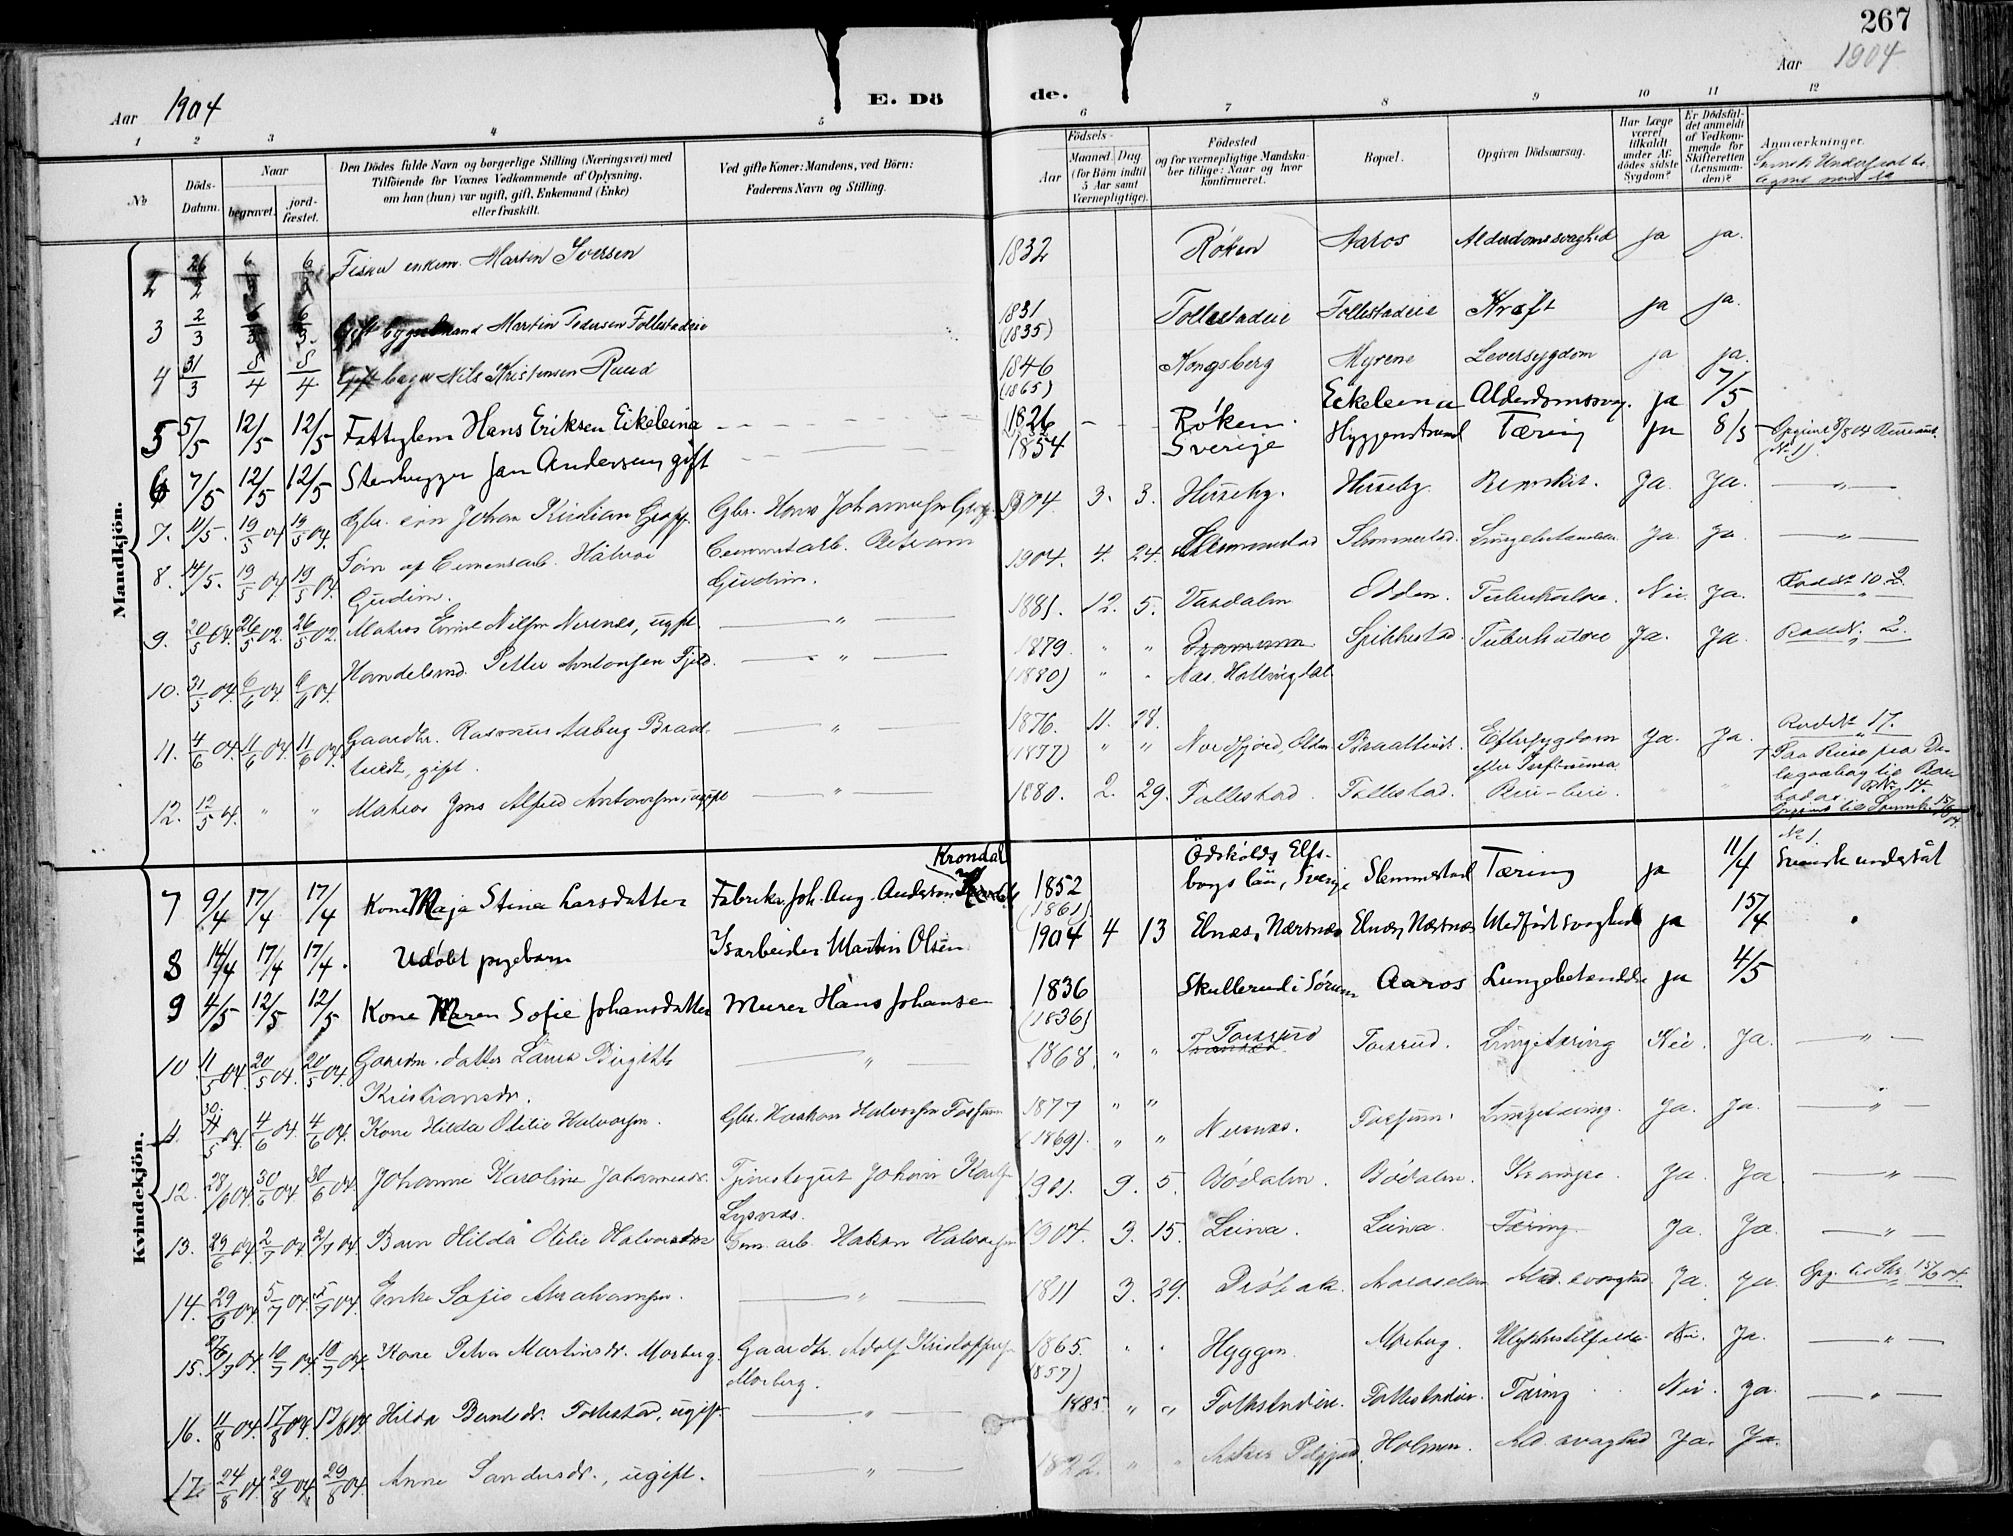 267
Aar 1904
E. Dö de.
Aar 1904
1 2 3 4 5 6 7 8 9 10 11 12
№
Döds-Datum.
Naar
begravet.
jord-fæstet.
Den Dödes fulde Navn og borgerlige Stilling (Næringsvei) med
Tilföiende for Voxnes Vedkommende af Oplysning,
om han (hun) var ugift, gift, Enkemand (Enke)
eller fraskilt.
Ved gifte Koner: Mandens, ved Börn:
Faderens Navn og Stilling.
Födsels-
Aar
Maaned. Dag
(for Börn indtil
5 Aar samt
Værnepligtige).
Födested
og for værnepligtige Mandska-
ber tillige: Naar og hvor
konfirmeret.
Bopæl.
Opgiven Dödsaarsag.
Har Læge
været
tilkaldt
under Af-
dödes sidste
Sygdom?
Er Dödsfal-
det anmeldt
af Vedkom-
mende for
Skifteretten
(Lensman-
den)?
Anmærkninger.
Mandkjön.
2 26/2 6/3 6/3 Fisker enkem. Martin Iversen 1832 Röken Aaros Alderdomssvaghed ja ja.
3 2/3 6/3 6/3. Gift Martin Pedersen Follestadeie 1831 (1835) Follestadeie Follestadeie Kræft ja ja.
4 31/3 8/4 8/4 Gift Nils Kristensen Ruud 1846 (1865) Kongsberg Myrene Leversygdom ja ja.
5 5/5 12/5 12/5 Fattiglem Hans Eriksen Eikeleina 1826 Röken. Eikeleina Alderdomssvag. ja 7/5
6 7/5 12/5 12/5 Stenhugger Jan Andersen, gift 1854 Sverige Hyggenstrand Tæring ja 8/5
7. 11/5. 19/5 04 19/5 04. Gbr. sön Johan Kristian Gbr. Hans Johannesen 1904. 3. 3. Hisseby. Hisseby. Ja. Ja. "
8. 14/5. 19/5 04 19/5 04. Sön af Cementarb. Halvor
Gudim. Cementarb. Betram
Gudim. 1904. 4. 24. Slemmestad Slemmestad. Lungebetændelse. Ja. Ja. "
9. 20/5 04. 26/5 02. 26/5 02. Matros Emil Nilsen Nersnes, ugift " 1881. 12. 5. Vasdalen Odden. Tuberkulose. Nei. Ja.
10. 31/5 04. 6/6 04. 6/6 04. Handelsmd. Petter Antonsen Fjeld. " 1879. " " Drammen
(1880) " " Næs. Hallingdal Spikkestad. Tuberkulose Ja. Ja.
11. 4/6 04. 11/6 04. 11/6 04. Gaardbr. Rasmus Aaberg Braat-
tveit, gift. " 1876. 11. 28.
(1877) " " Nordfjord, Olden Efter Sygdom
efter Influensa Ja. Ja.
12. 12/5 04. " " Matros Jens Alfred Antonsen, ugift " 1880. 2. 29. Follestad. Follestad. Beri-beri. " "
Kvindekjön.
7 9/4 17/4 17/4 Kone Maja Stina Larsdatter Fabrika. Joh. Aug. Anderson Krondal 1852 (1861) Ödskölds, Elfs-
borgs län, Sverige Slemmestad Tæring ja 11/4 Svensk undersåt
8 14/4 17/4 17/4. Udöbt pigebarn Isarbeider Martin Olsen 1904 4 13 Elnæs, Nærsnæs Elnæs, Nærsnæs Medfödt svaghed ja 15/4
9 4/5 12/5 12/5 Kone Maren Sofie Johansdatter Murer Hans Johansen 1836 (1836) Skullerud i Sörum Aaros Lungebetændelse ja 4/5
10 11/5 04. 20/5 04. 20/5 04. Gaardm. datter Laura Birgitte
Kristiansdr. " 1868. " " Torsrud Torsrud. Lungetæring Nei. Ja. "
11. 30/5 04. 4/6 04. 4/6 04. Kone Hilda Otilie Halvorsen. Gbr. Haakon Halvorsen 1877 (1869). " " Nersnæs. Lungetæring. Ja. Ja. "
12. 28/6 04. 30/6 04 30/6 04. Johanne Karoline Johannesdr. Tjenestegut Johan 1901. 9. 5. Bödalen. Bödalen. Krampe Ja. Ja "
13. 29/6 04. 2/7 04. 2/7 04 Barn Hilda Otilie Halvorsdr. Cem. arb. Hakon Halvorsen 1904. 3. 15. Leina. Leina. Tæring Ja. Ja. "
14. 29/6 04. 5/7 04. 5/7 04. Enke Sofie Abrahamsen. " 1811 3. 29. Dröbak Ald. svaghed Ja. Ja.
15. 10/7 04. 10/7 04. Kone Petra Martinsdr. Morberg. Gaardbr. Adolf Kristoffersen
Morberg. 1865. (1857) " " Hyggen. Morberg. Ulykkestilfælde Nei. Ja. "
16. 11/8 04. 17/8 04. 17/8 04 Hilda Berntsdr. Follestad, ugift. " 1885. " " Follestadeie. Follestadeie. Tæring Nei. Ja. "
17. 24/8 04. 29/8 04. 29/8 04. Anne Sandersdr., ugift. " 1822. " " Holmen. Ald. svaghed Ja. Ja.